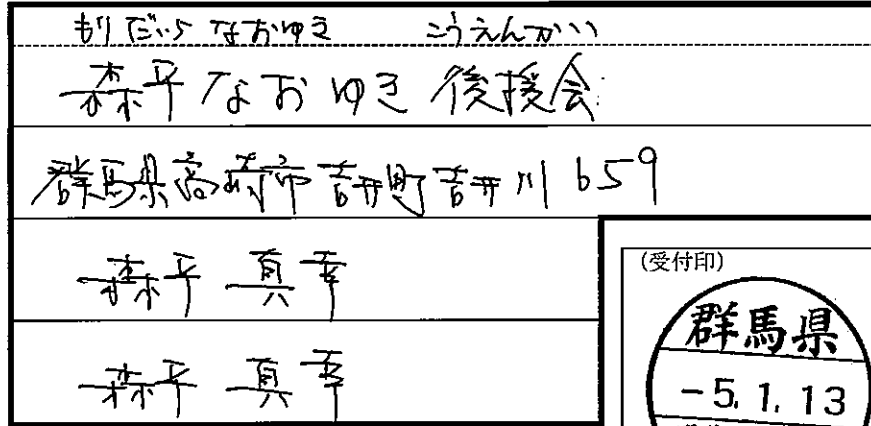 もりだいら なおゆき こうえんかい
森平 なおゆき 後援会
群馬県高崎市吉井町吉井川 659
森平 真幸
森平 真幸
(受付印)
群馬県
-5.1.13